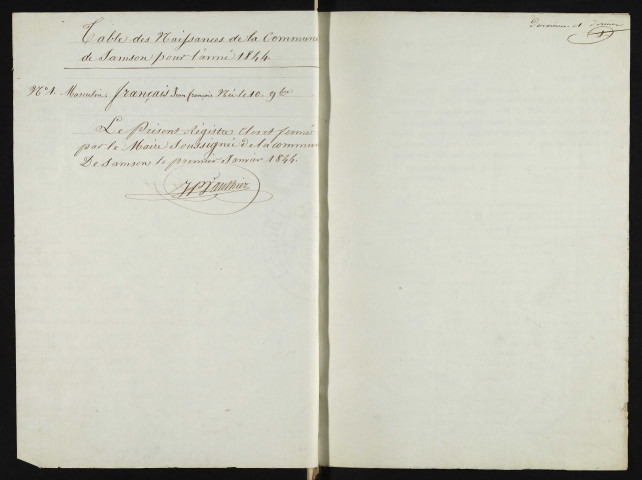 Table des Naissances de la Commune
de Samson pour l'anné 1844
N° 1. Masculin. français Jean françois Né le 10 9bre
Le Présent Régistre Clos et fermé
par le Maire Soussignée de la commun
De Samson le premier Janvier 1844.
Dernier et